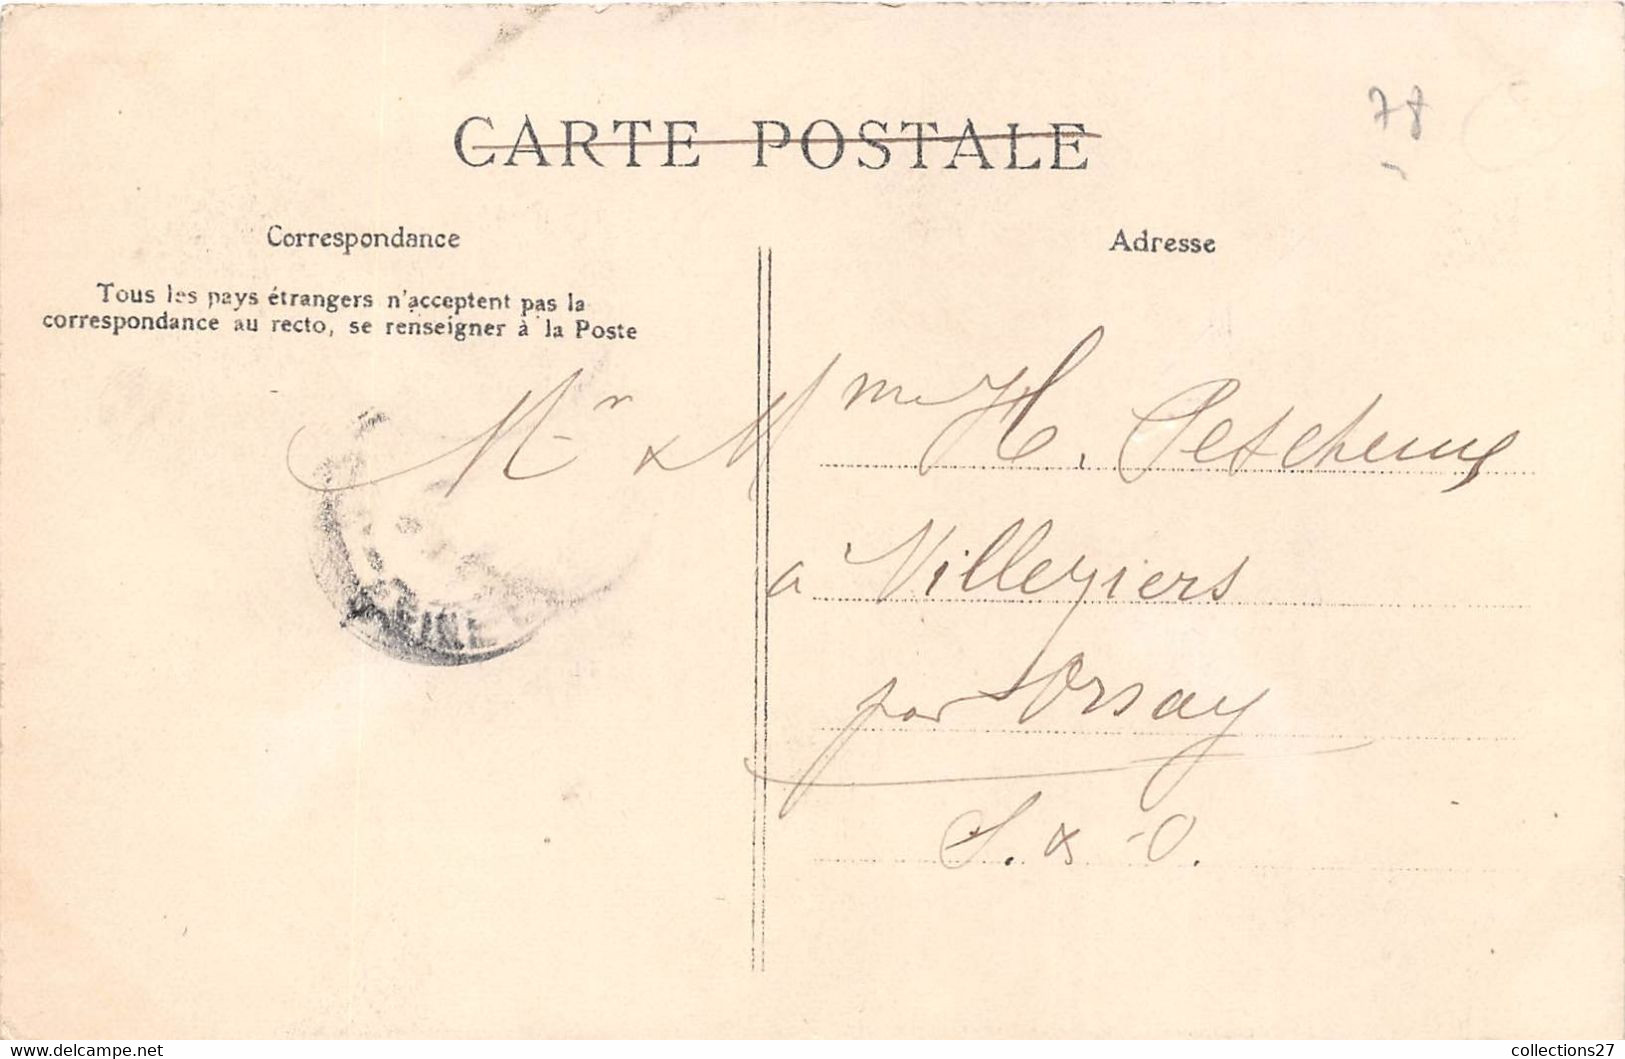 78
CARTE POSTALE
Correspondance
Adresse
Tous les pays étrangers n'acceptent pas la
correspondance au recto, se renseigner à la Poste
Mr & Mme H.
a Villeziers
par Orsay
S. & O.
collections27